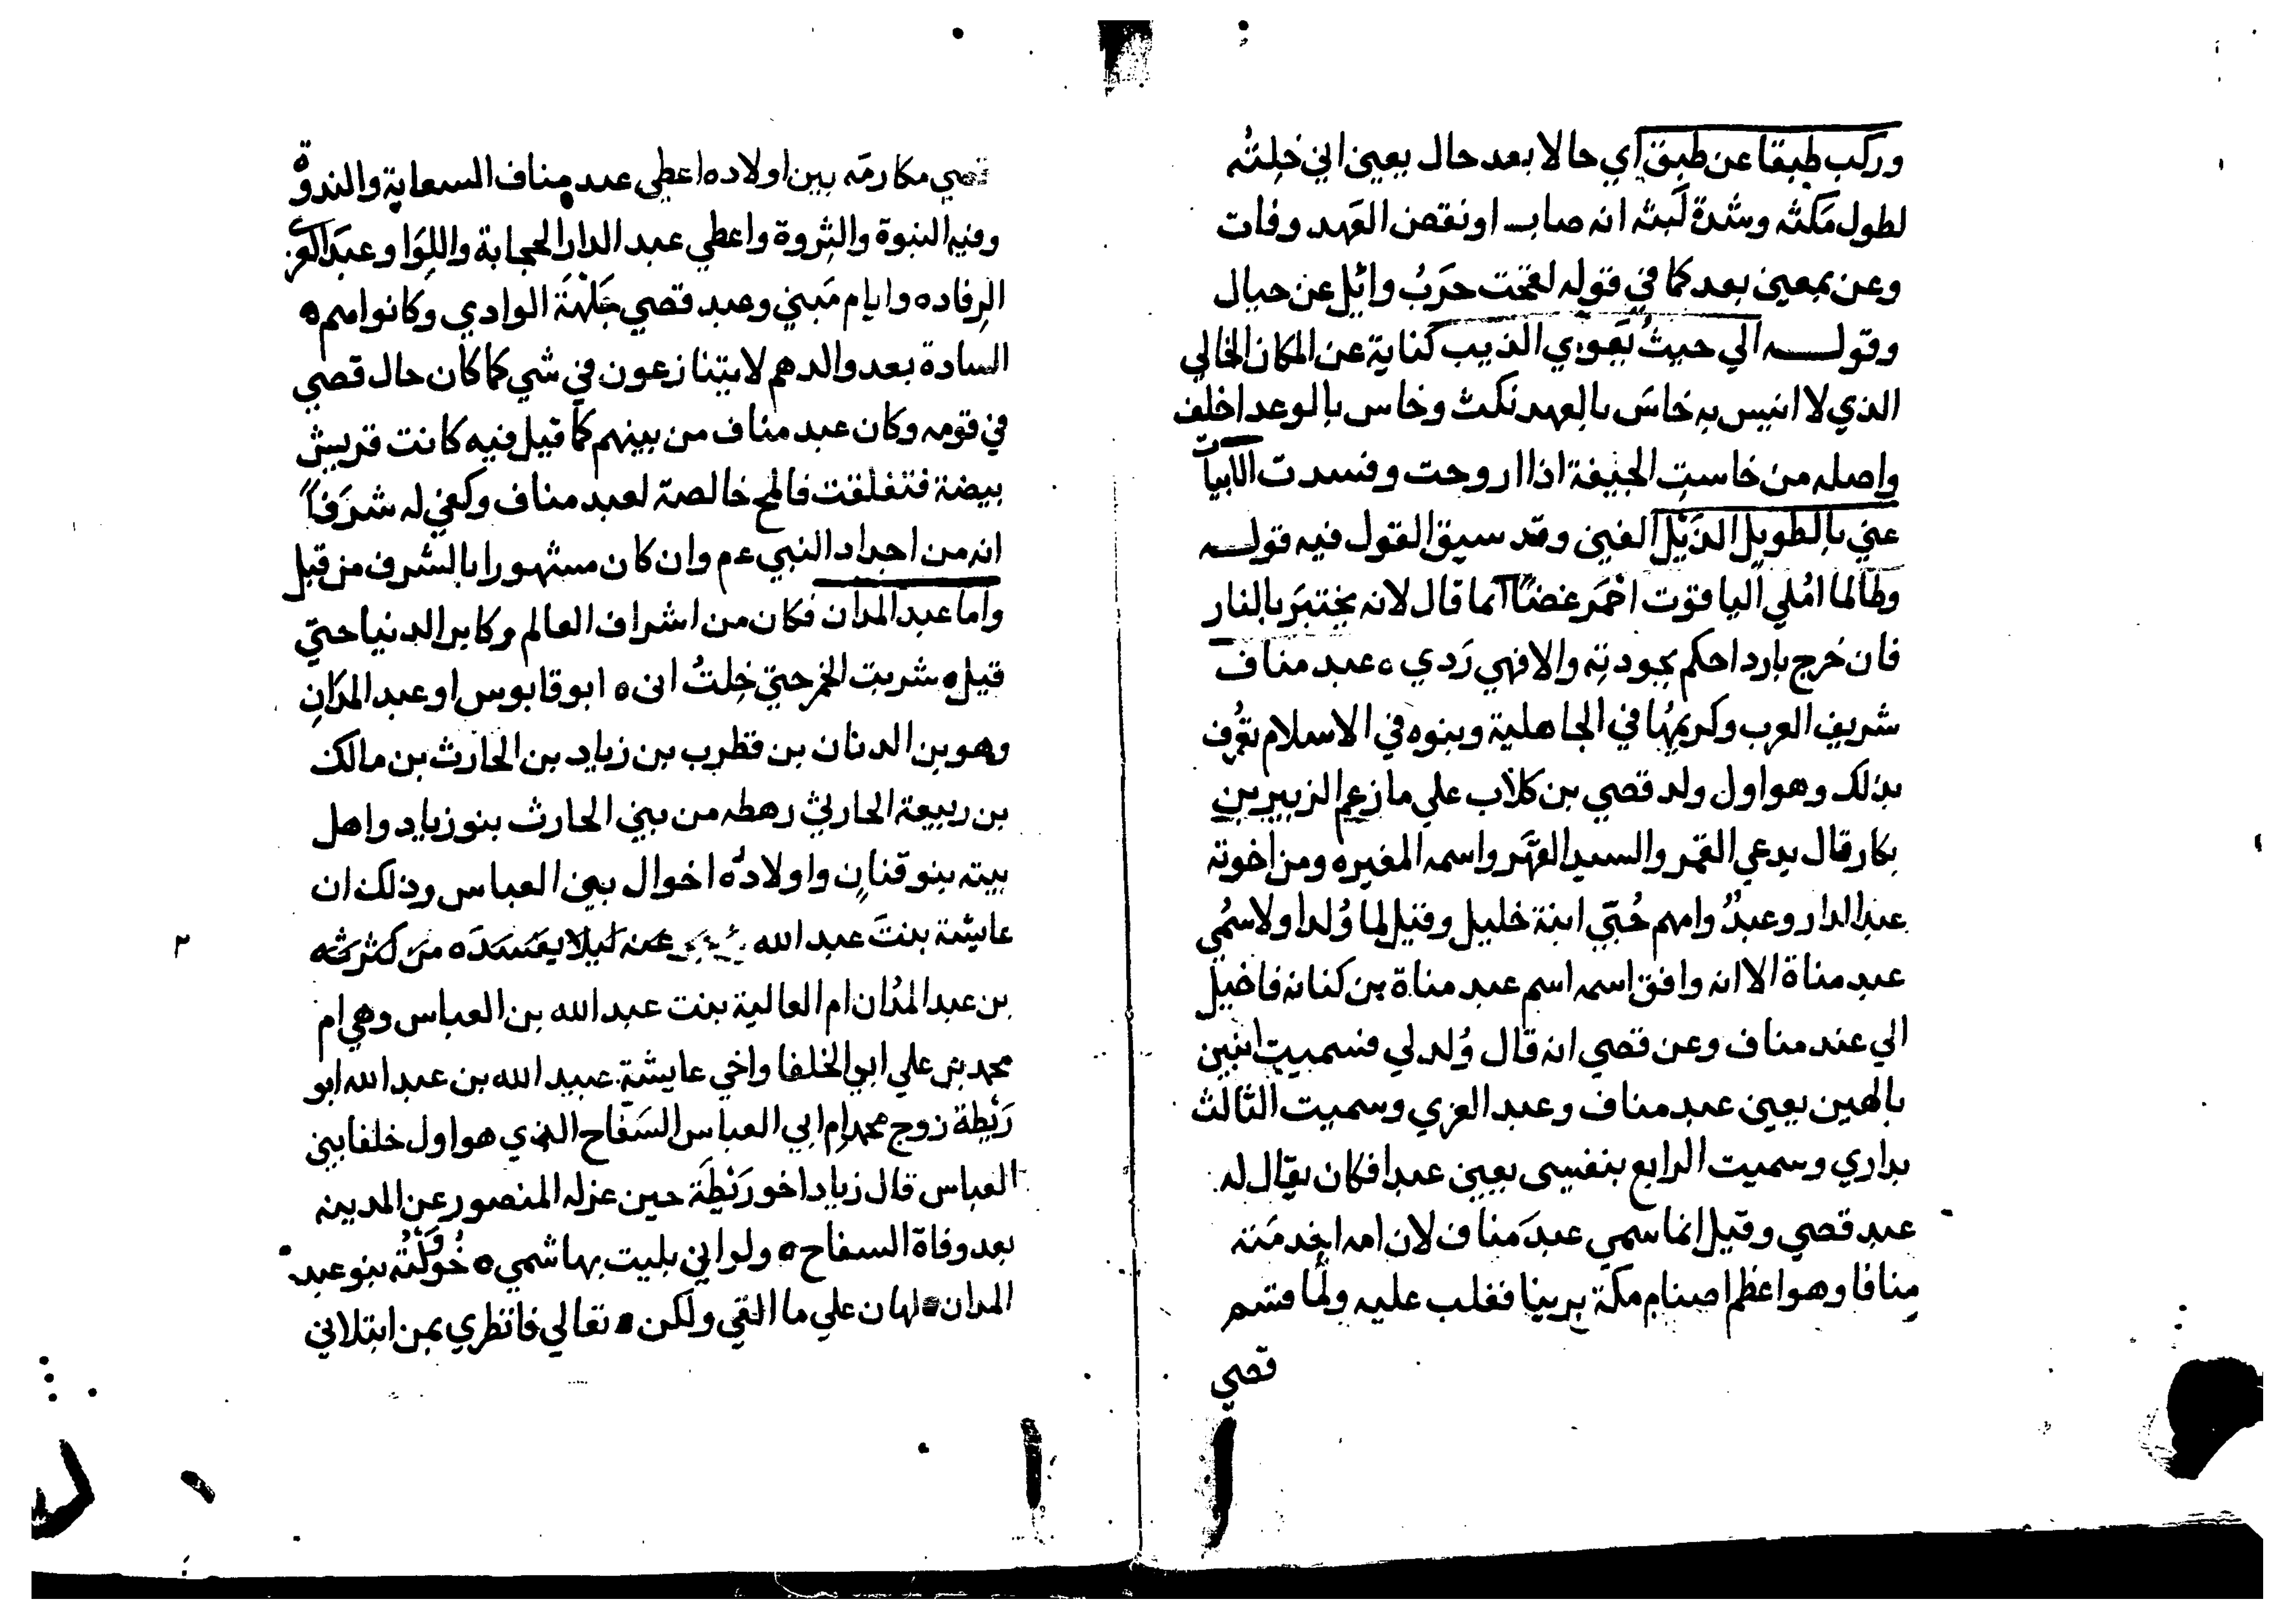 وركب طبقا عن طبق اي حالا بعد حال يعني اني خلته
لطول مكثه وشدة لبثه انه صاب او نقض العهد وفات
وعن بمعني بعد كما في قوله لقحت حرب وائل عن حيال
وقوله الي حيث تعوي الذيب كناية عن المكان الخالي
الذي لا انيس به خاس بالعهد نكث وخاس بالوعد اخلف
واصله من خاست الجيفة اذا اروحت وفسدت الابيات
عني بالطويل الذيل الغني وقد سبق القول فيه قوله
وطالما اصلي الياقوت احمر غضا انما قال لانه يختبر بالنار
فان خرج باردا حكم بجودته والا فهي ردي، عبد مناف
شريف العرب وكريمها في الجاهلية وبنوه في الاسلام تعرف
بذلك وهو اول ولد قصي بن كلاب علي ما زعم الزبير بن
بكار قال يدعي القمر والسيد القهر واسمه المغيره ومن اخوته
عبد الدار وعبد وامهم حبي ابنة خليل وقيل لما ولد اولا سمي
عبد مناة الا انه وافق اسمه اسم عبد مناة بن كنانه فاحيل
الي عند مناف وعن قصي انه قال ولد لي فسميت ابنين
بالهين يعني عبد مناف وعبد العزي وسميت الثالث
بداري وسميت الرابع بنفسي يعني عبدا فكان يقال له
عبد قصي وقيل انما سمي عبد مناف لان امه اخدمته
منافا وهو اعظم اصنام مكة فغلب عليه ولما قسم
قصي
قصي مكارمه بين اولاده اعطي عبد مناف السعاية والندوة
وفيه النبوة والثروة واعطي عبد الدار الحجابة واللوا وعبد العزي
الرفاده وايام مني وعبد قصي جلهة الوادي وكانوا هم
السادة بعد والدهم لا يتنازعون في شي كما كان حال قصي
في قومه وكان عبد مناف من بينهم كما قيل فيه كانت قريش
بيضة فتفلقت فالمح خالصة لعبد مناف وكفي له شرفا
انه من اجداد النبي ءم وان كان مشهورا بالشرف من قبل
واما عبد المدان فكان من اشراف العالم وكابر الدنيا حتي
قيل شربت الخمر حتي خلت اني ابو قابوس او عبد المدان
وهو بن الدنان بن قطرب بن زياد بن الحارث بن مالك
بن ربيعة الحارثي رهطه من بني الحارث بنو زياد واهل
بيته بنو قنان واولاده اخوال بني العباس وذلك ان
عايشة بنت عبد الله
بن عبد المدان ام العالية بنت عبد الله بن العباس وهي ام
محمد بن علي ابي الخلفا واخي عايشة عبيد الله بن عبد الله ابو
ريطة زوج محمد ام ابي العباس السفاح الذي هو اول خلفا بني
العباس قال زياد اخو ريطة حين عزله المنصور عن المدينه
بعد وفاة السفاح ولو اني بليت بهاشمي خؤلته بنو عبد
المدان لهان علي ما القي ولكن تعالي فانظري بمن ابتلاني